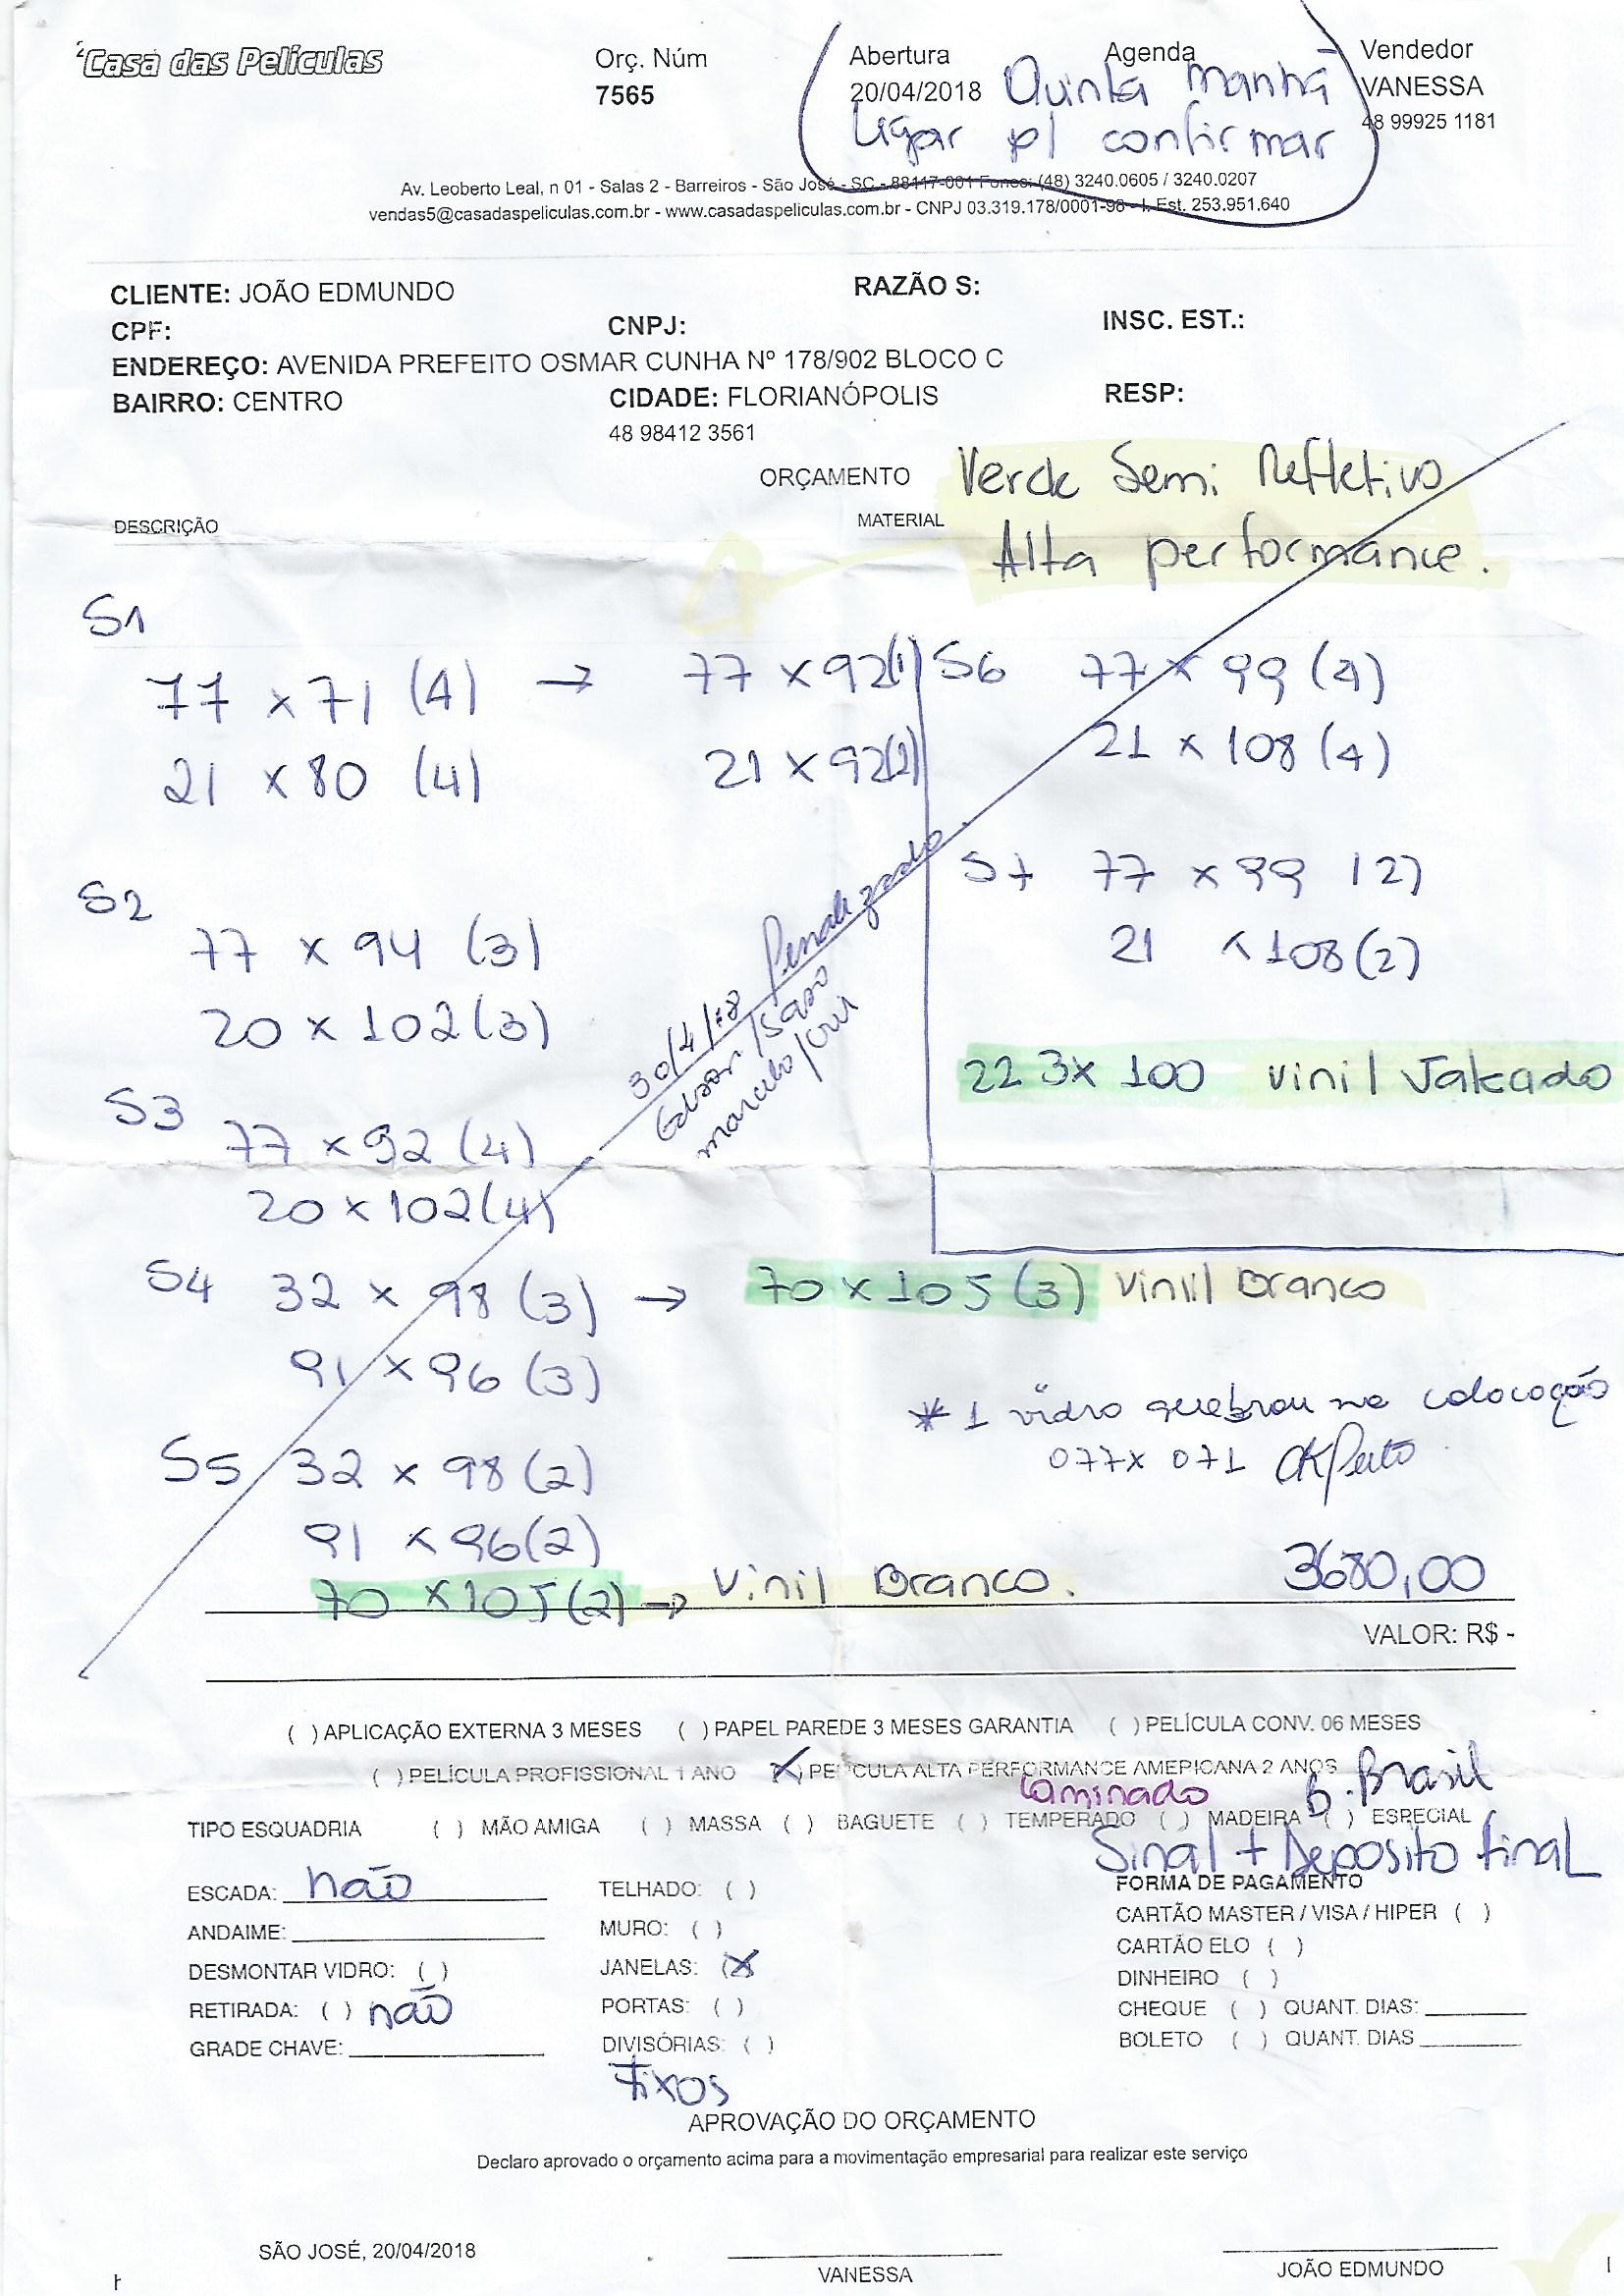 Casa das Películas
Orç. Núm
7565
Abertura
20/04/2018
Agenda
Quinta manhã
Ligar p/ confirmar
Vendedor
VANESSA
48 99925 1181
Av. Leoberto Leal, n 01 - Salas 2 - Barreiros - São José - SC - 88117-001 Fones: (48) 3240.0605 / 3240.0207
vendas5@casadaspeliculas.com.br - www.casadaspeliculas.com.br - CNPJ 03.319.178/0001-98 - I. Est. 253.951.640
CLIENTE: JOÃO EDMUNDO RAZÃO S:
CPF: CNPJ: INSC. EST.:
ENDEREÇO: AVENIDA PREFEITO OSMAR CUNHA Nº 178/902 BLOCO C
BAIRRO: CENTRO CIDADE: FLORIANÓPOLIS RESP:
48 98412 3561
ORÇAMENTO
DESCRIÇÃO MATERIAL
Verde Semi Refletivo
Alta performance.
S1
77 x 71 (4) → 77 x 92(1)
21 x 80 (4) 21 x 92(1)
S2
77 x 94 (3)
20 x 102 (3)
S3
77 x 92 (4)
20 x 102 (4)
S4 32 x 98 (3) → 70 x 105 (3) Vinil Branco
91 x 96 (3)
S5 32 x 98 (2)
91 x 96 (2)
70 x 105 (2) → Vinil Branco.
S6 77 x 99 (4)
21 x 108 (4)
S7 77 x 99 (2)
21 x 108 (2)
22 3x 100 vinil Jateado
30/4/18
* 1 vidro quebrou na colocação
077 x 071 OK
3680,00
VALOR: R$ -
( ) APLICAÇÃO EXTERNA 3 MESES ( ) PAPEL PAREDE 3 MESES GARANTIA ( ) PELÍCULA CONV. 06 MESES
( ) PELÍCULA PROFISSIONAL 1 ANO (X) PELÍCULA ALTA PERFORMANCE AMERICANA 2 ANOS
Laminado B. Brasil
TIPO ESQUADRIA ( ) MÃO AMIGA ( ) MASSA ( ) BAGUETE ( ) TEMPERADO ( ) MADEIRA ( ) ESPECIAL
Sinal + Deposito final
ESCADA: não
ANDAIME:
DESMONTAR VIDRO: ( )
RETIRADA: ( ) não
GRADE CHAVE:
TELHADO: ( )
MURO: ( )
JANELAS: (X)
PORTAS: ( )
DIVISÓRIAS: ( )
Fixos
FORMA DE PAGAMENTO
CARTÃO MASTER / VISA / HIPER ( )
CARTÃO ELO ( )
DINHEIRO ( )
CHEQUE ( ) QUANT. DIAS:
BOLETO ( ) QUANT. DIAS
APROVAÇÃO DO ORÇAMENTO
Declaro aprovado o orçamento acima para a movimentação empresarial para realizar este serviço
SÃO JOSÉ, 20/04/2018
VANESSA
JOÃO EDMUNDO